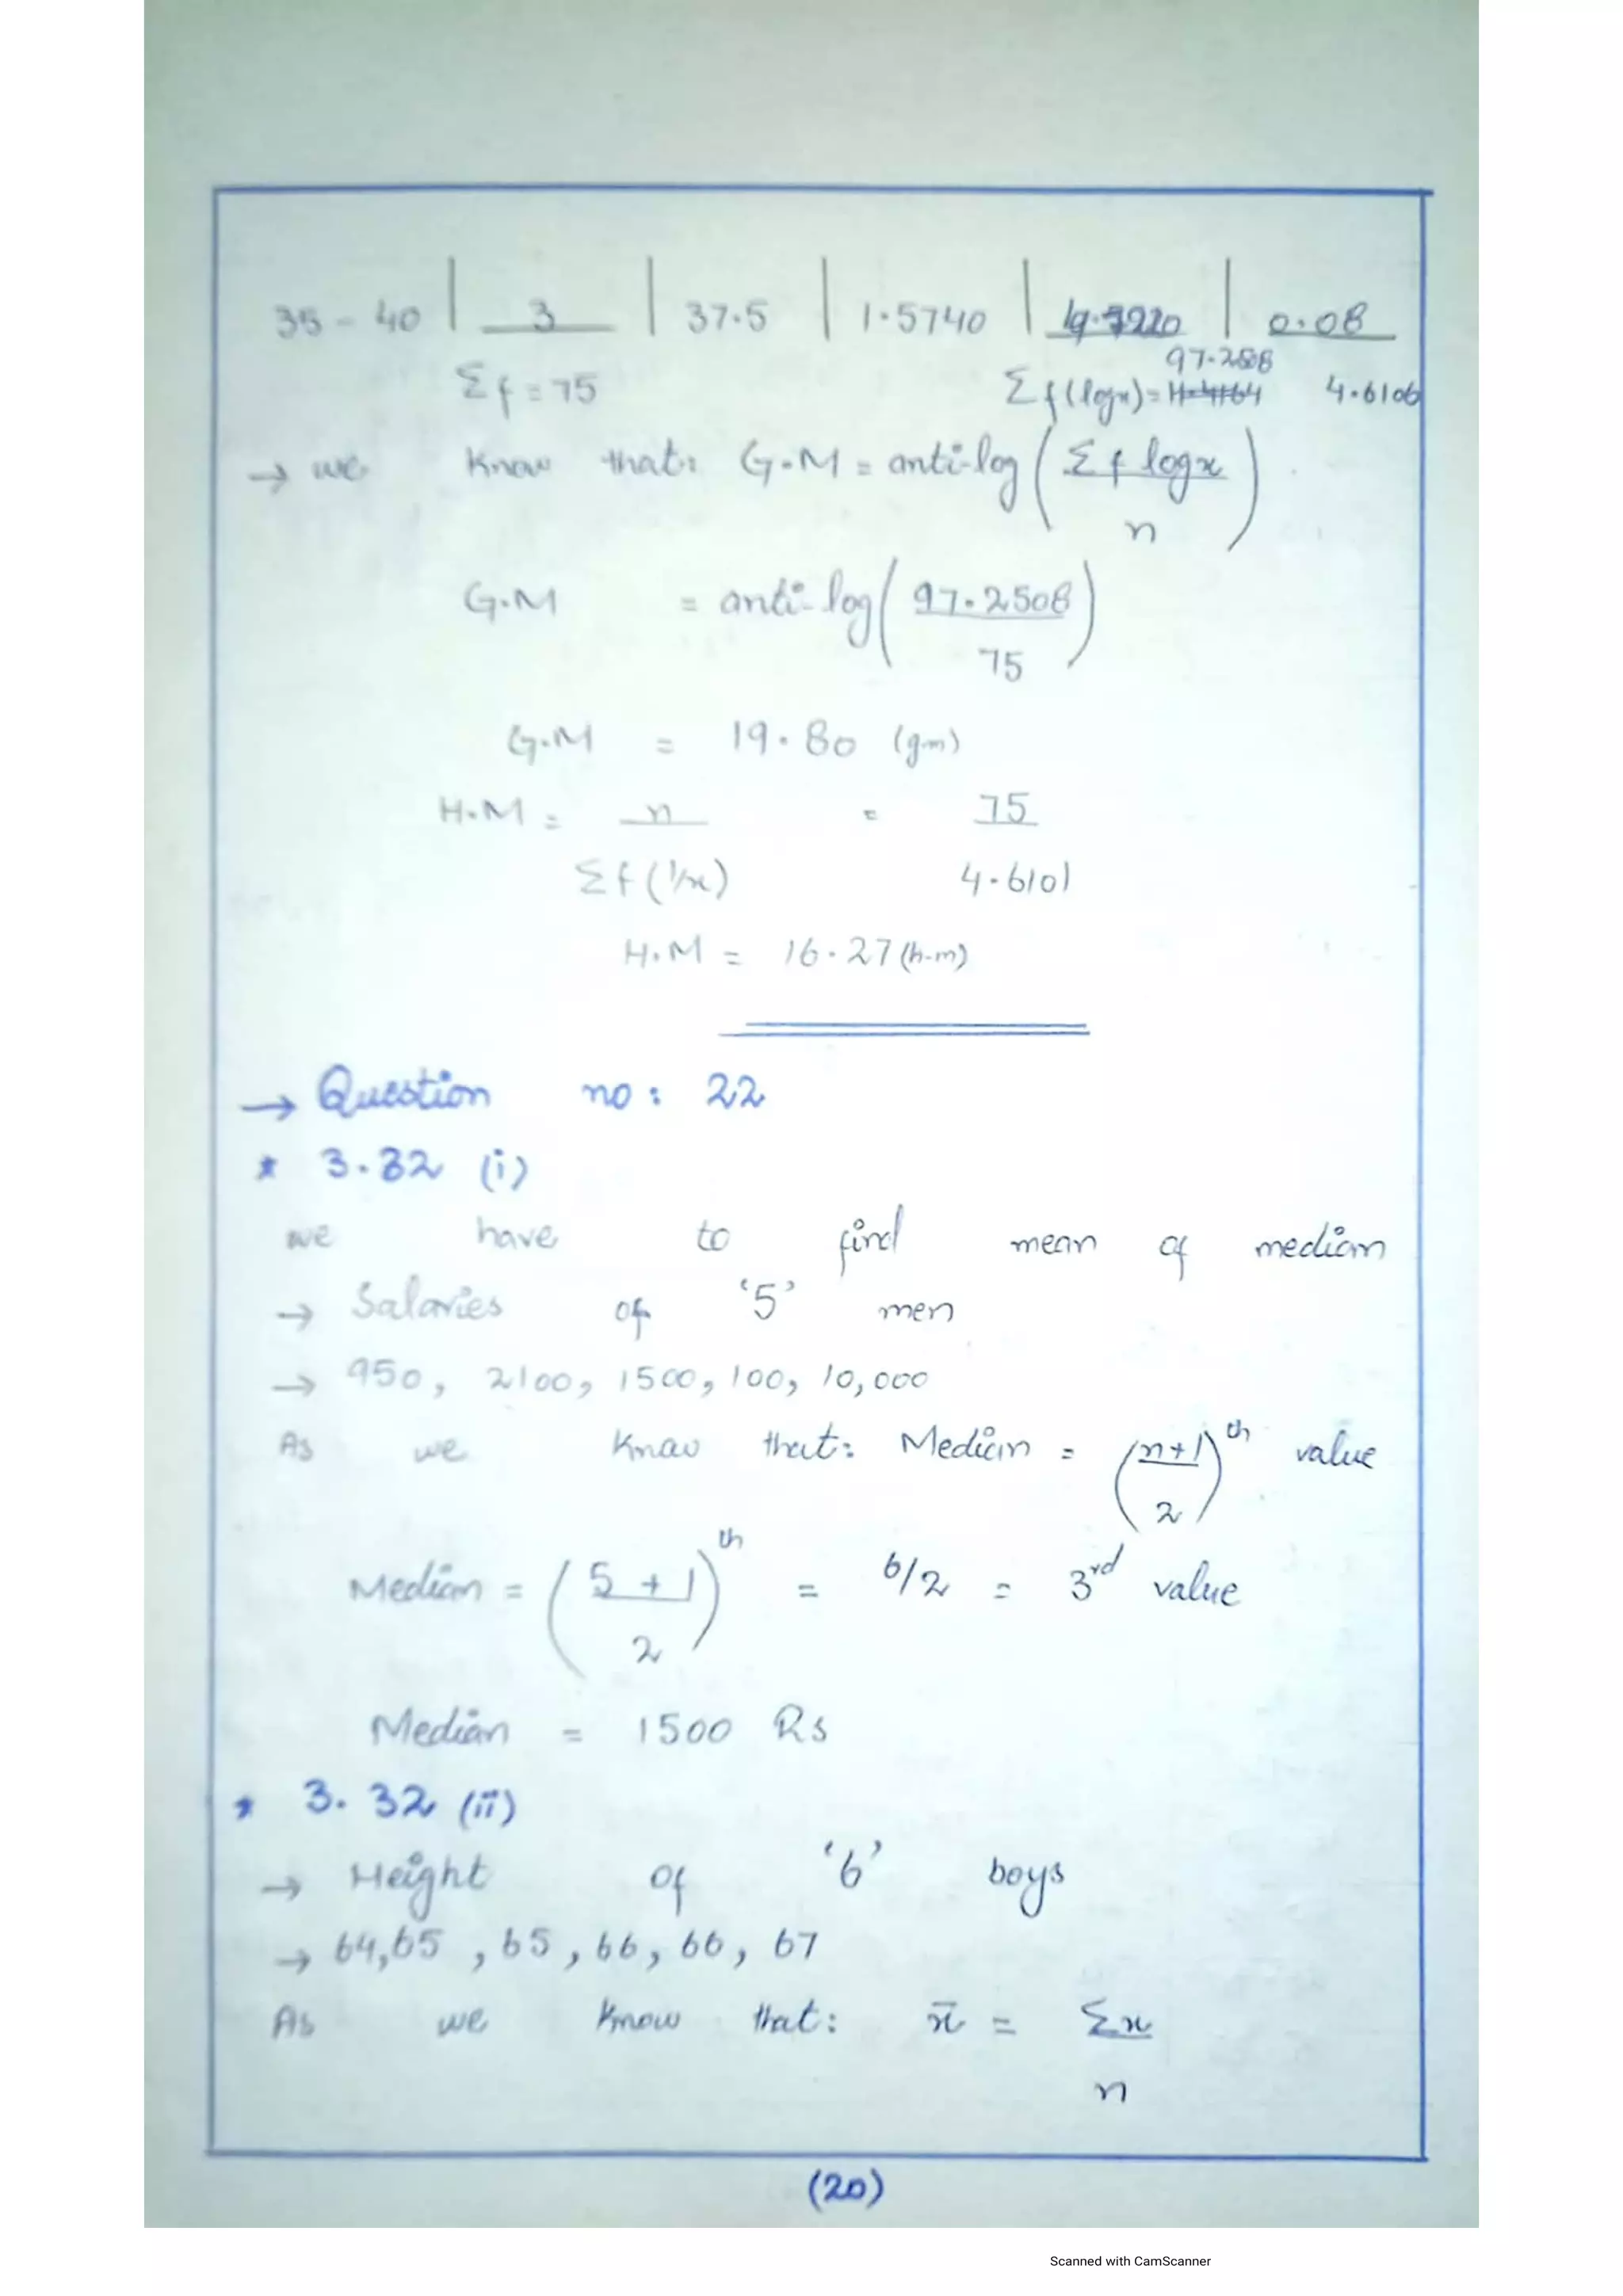 35 - 40 | 3 | 37.5 | 1.5740 | | 0.08
97.258
Σf = 75 Σf(logx) = 4.6106
→ we know that: G.M = anti-log ( Σ f logx / n )
G.M = anti-log ( 97.2508 / 75 )
G.M = 19.80 (g.m)
H.M = n / Σf(1/x) = 75 / 4.6101
H.M = 16.27 (h-m)
→ Question no: 22
* 3.32 (i)
we have to find mean of median
→ Salaries of '5' men
→ 950, 2100, 1500, 100, 10,000
As we know that: Median = ( n + 1 / 2 )th value
Median = ( 5 + 1 / 2 )th = 6/2 = 3rd value
Median = 1500 Rs
* 3.32 (ii)
→ Height of '6' boys
→ 64,65 , 65 , 66, 66, 67
As we know that: x̄ = Σx / n
(20)
Scanned with CamScanner